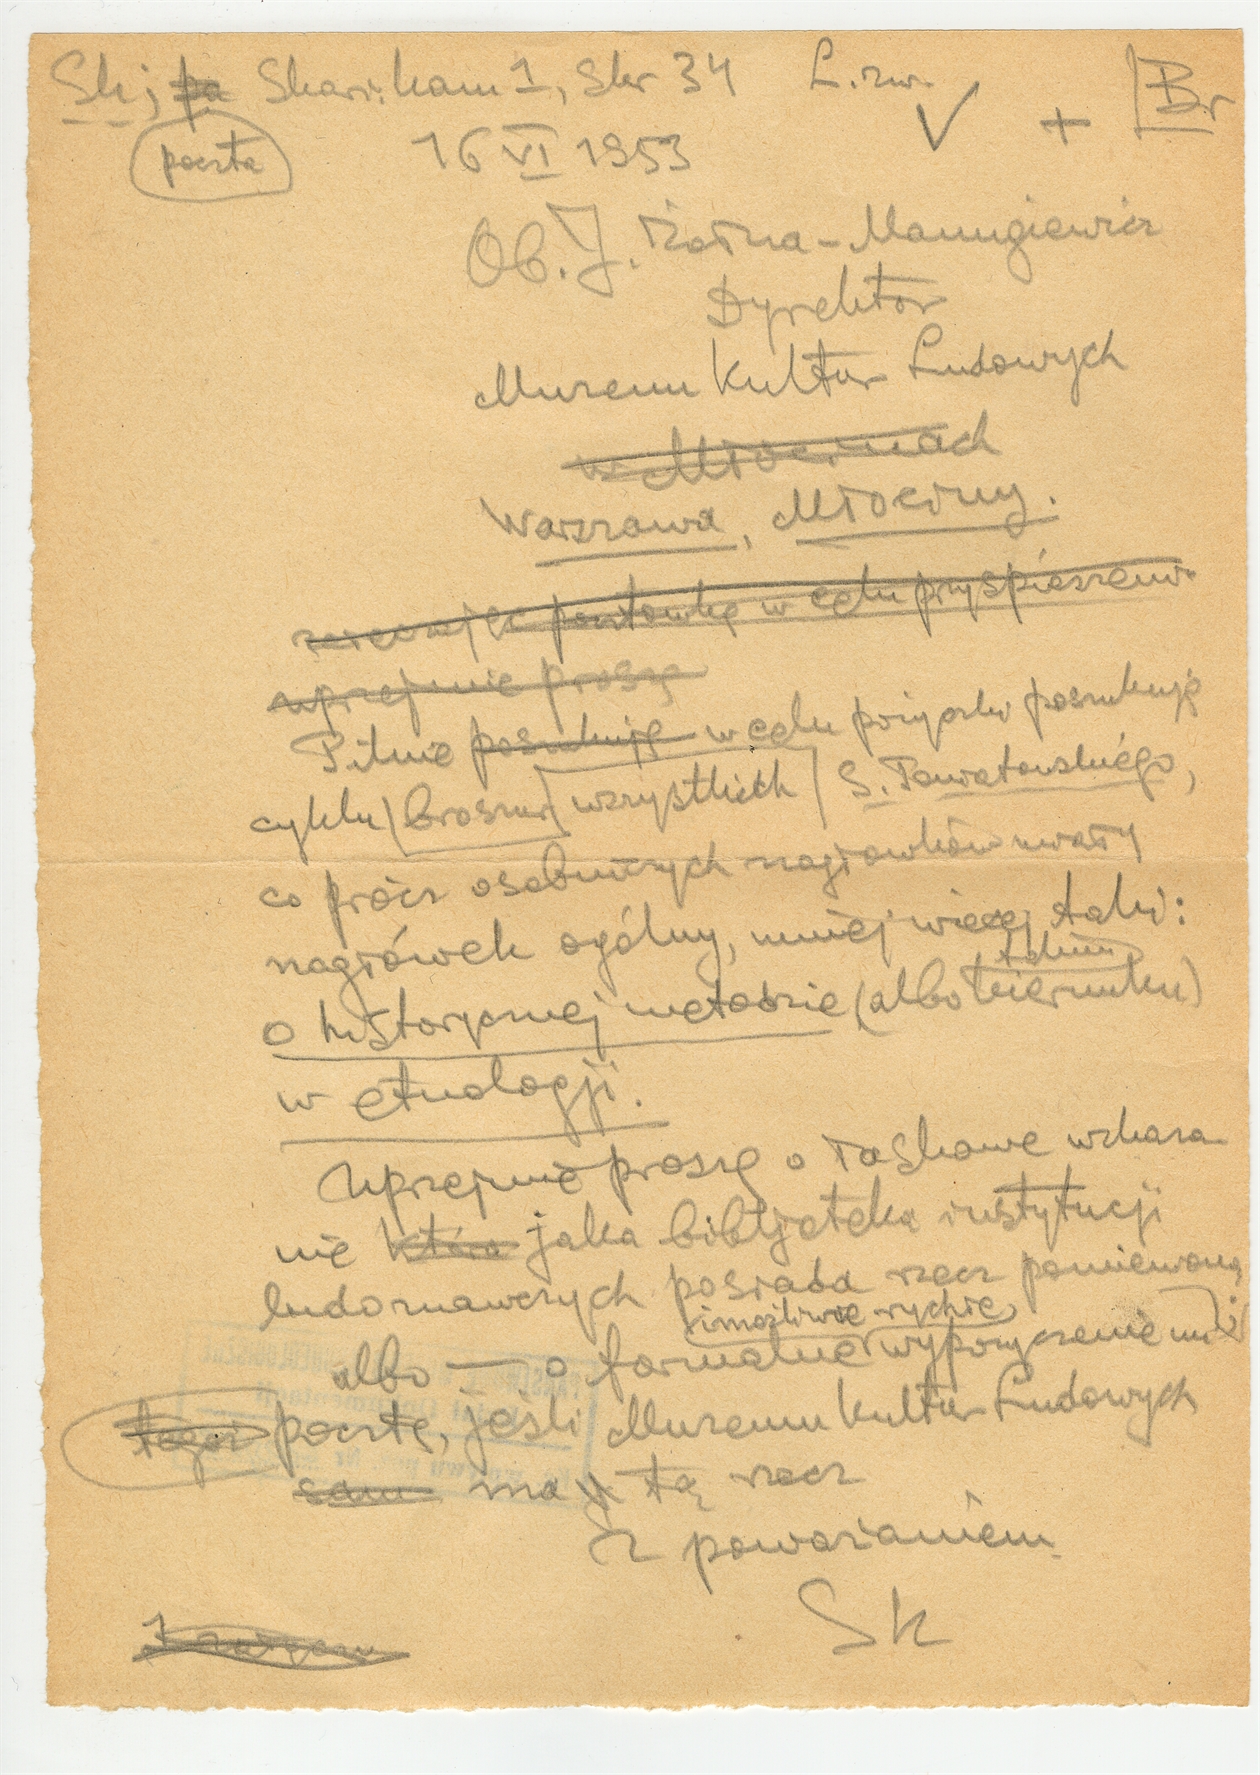 Sk; pa Skarż. kam 1, Skr 34 L. zw. Br
poczta 16 VI 1953
Ob. J. Żołna-Manugiewicz
Dyrektor
Muzeum Kultur Ludowych
w Młocinach
Warszawa, Młociny.
pocztówkę w celu przyspieszeni
uprzejmie proszę
Pilnie poszukuję w celu pożyczki poszukuję
cyklu broszur wszystkich S. Poniatowskiego,
co prócz osobniczych nagłówków miały
nagłówek ogólny, mniej więcej taki:
o historycznej metodzie (albo kierunku)
w etnologji.
Uprzejmie proszę o łaskawe wskaza
nie która jaka bibljoteka instytucji
ludoznawczych posiada rzecz pomienioną
i możliwie rychłe
albo — o formalne wypożyczenie mi
pocztą, jeśli Muzeum Kultur Ludowych
samo ma tą rzecz
Z poważaniem
Sk